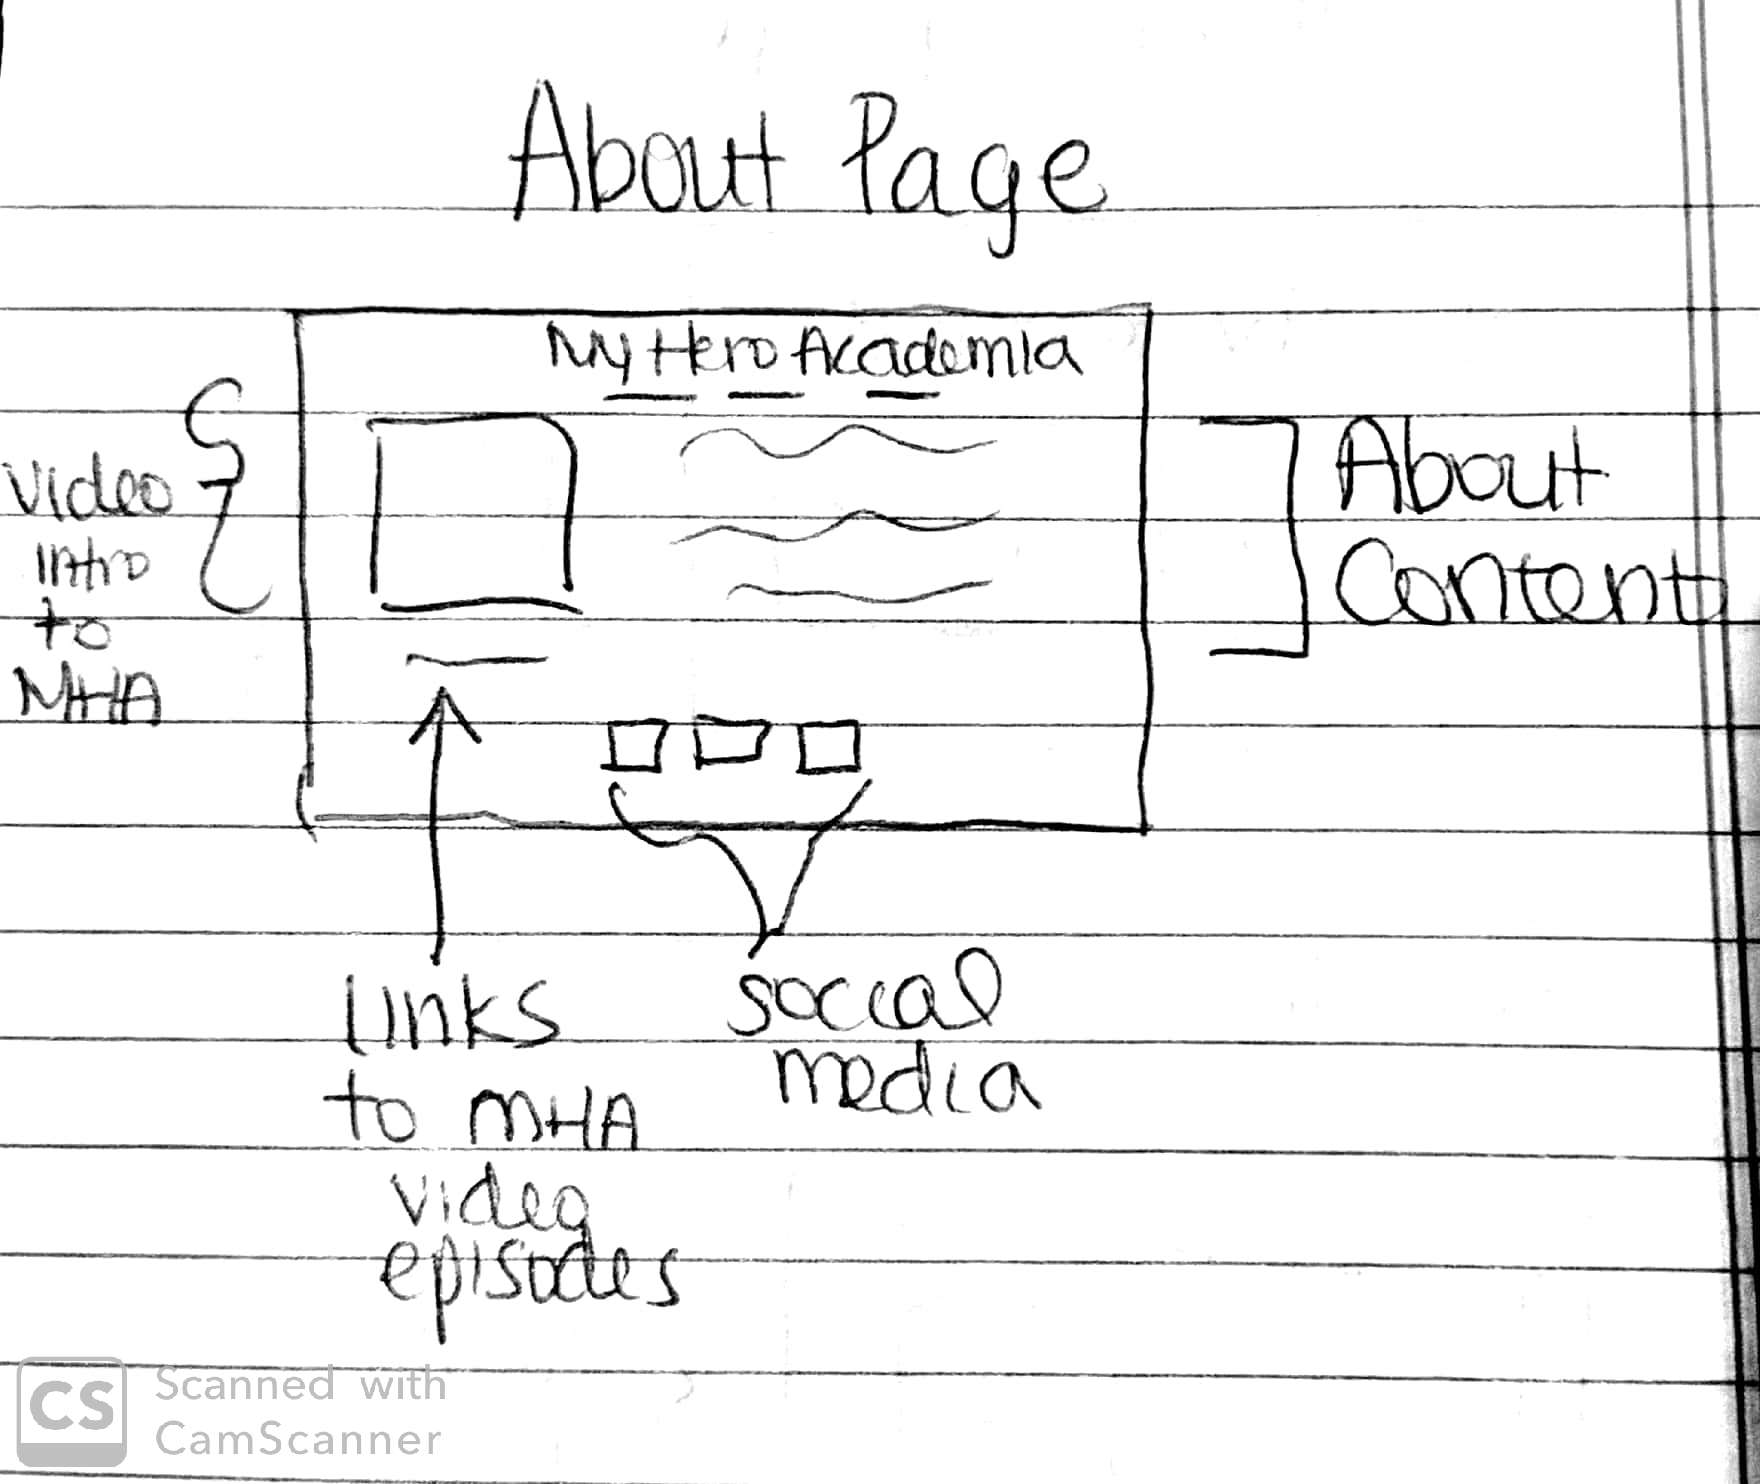 About Page
My Hero Academia
Video
intro
to
MHA
About
Content
links
to MHA
video
episodes
social
media
CS
Scanned with
CamScanner